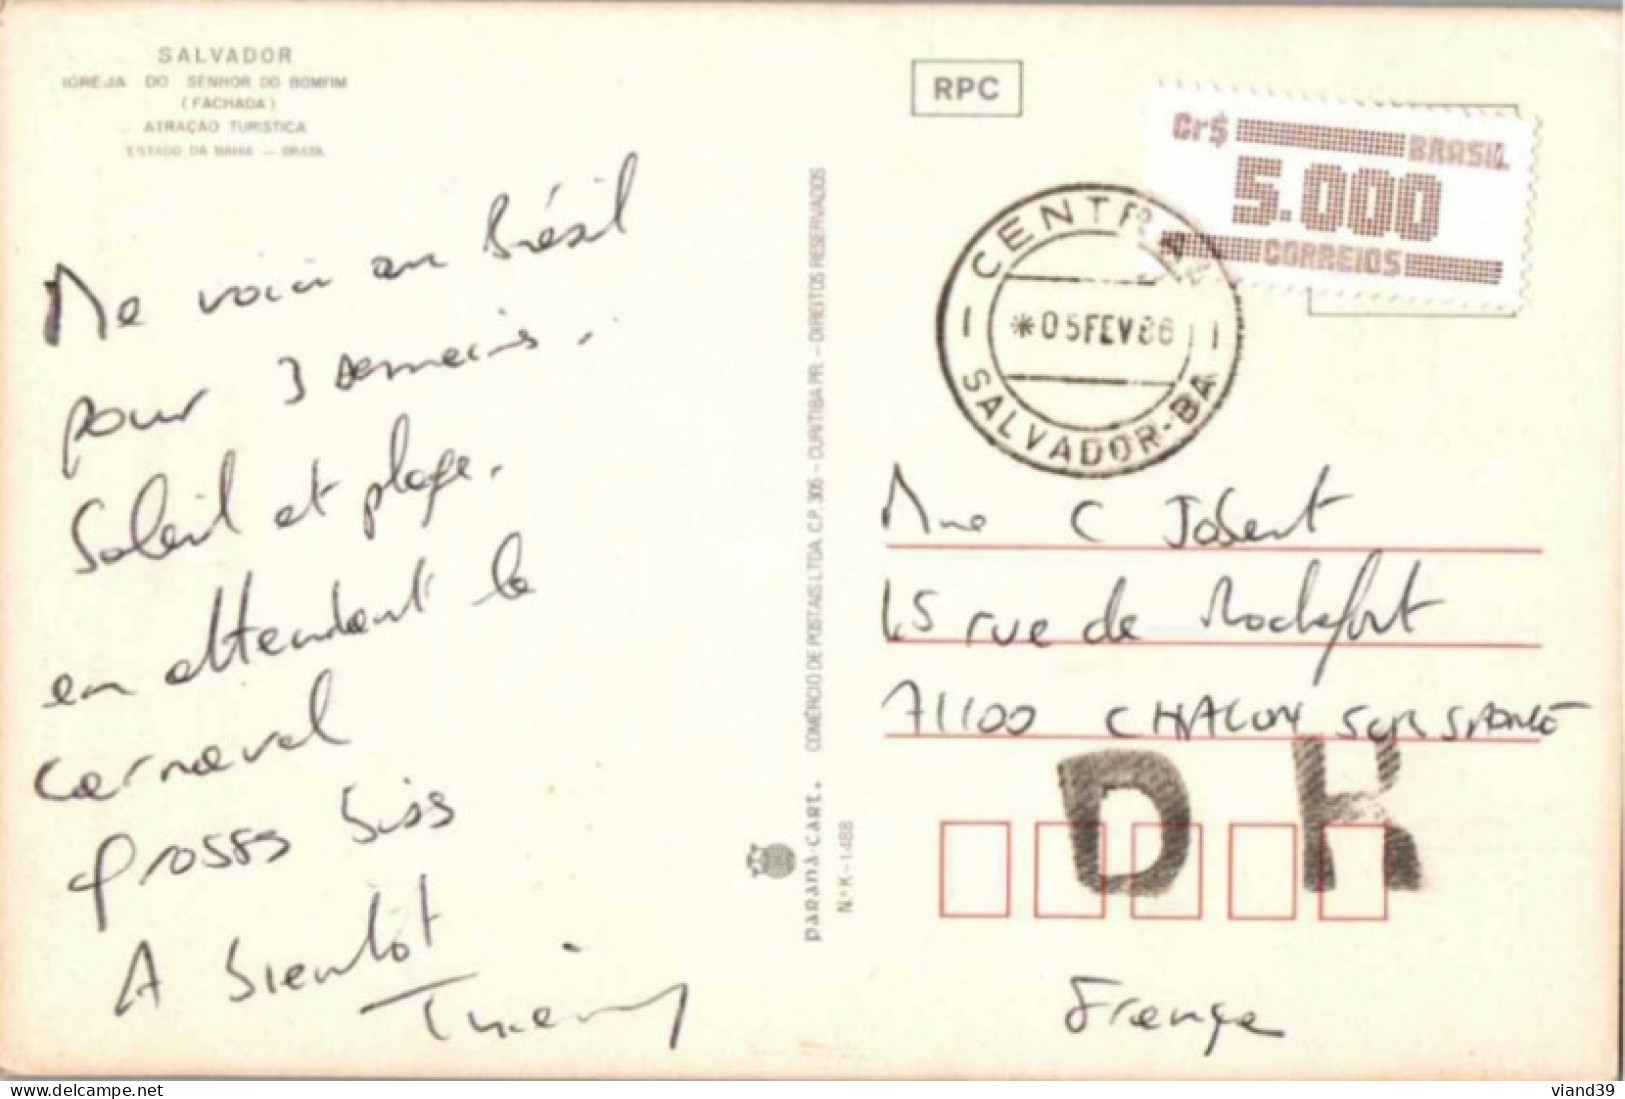 SALVADOR
IGREJA DO SENHOR DO BOMFIM
(FACHADA)
ATRAÇÃO TURISTICA
ESTADO DA BAHIA — BRASIL
Me voici au Brésil
pour 3 semaines.
Soleil et plage.
en attendant le
carnaval
grosses biss
A bientôt
Thierry
COMÉRCIO DE POSTAIS LTDA. C.P. 305 – CURITIBA PR. – DIREITOS RESERVADOS
paraná-cart.
N.º K-1488
RPC
Cr$ BRASIL
5.000
CORREIOS
CENTRAL
*05FEV86
SALVADOR-BA
Mme C Jobert
15 rue de Rochefort
71100 CHALON SUR SAONE
D R
France
viand39